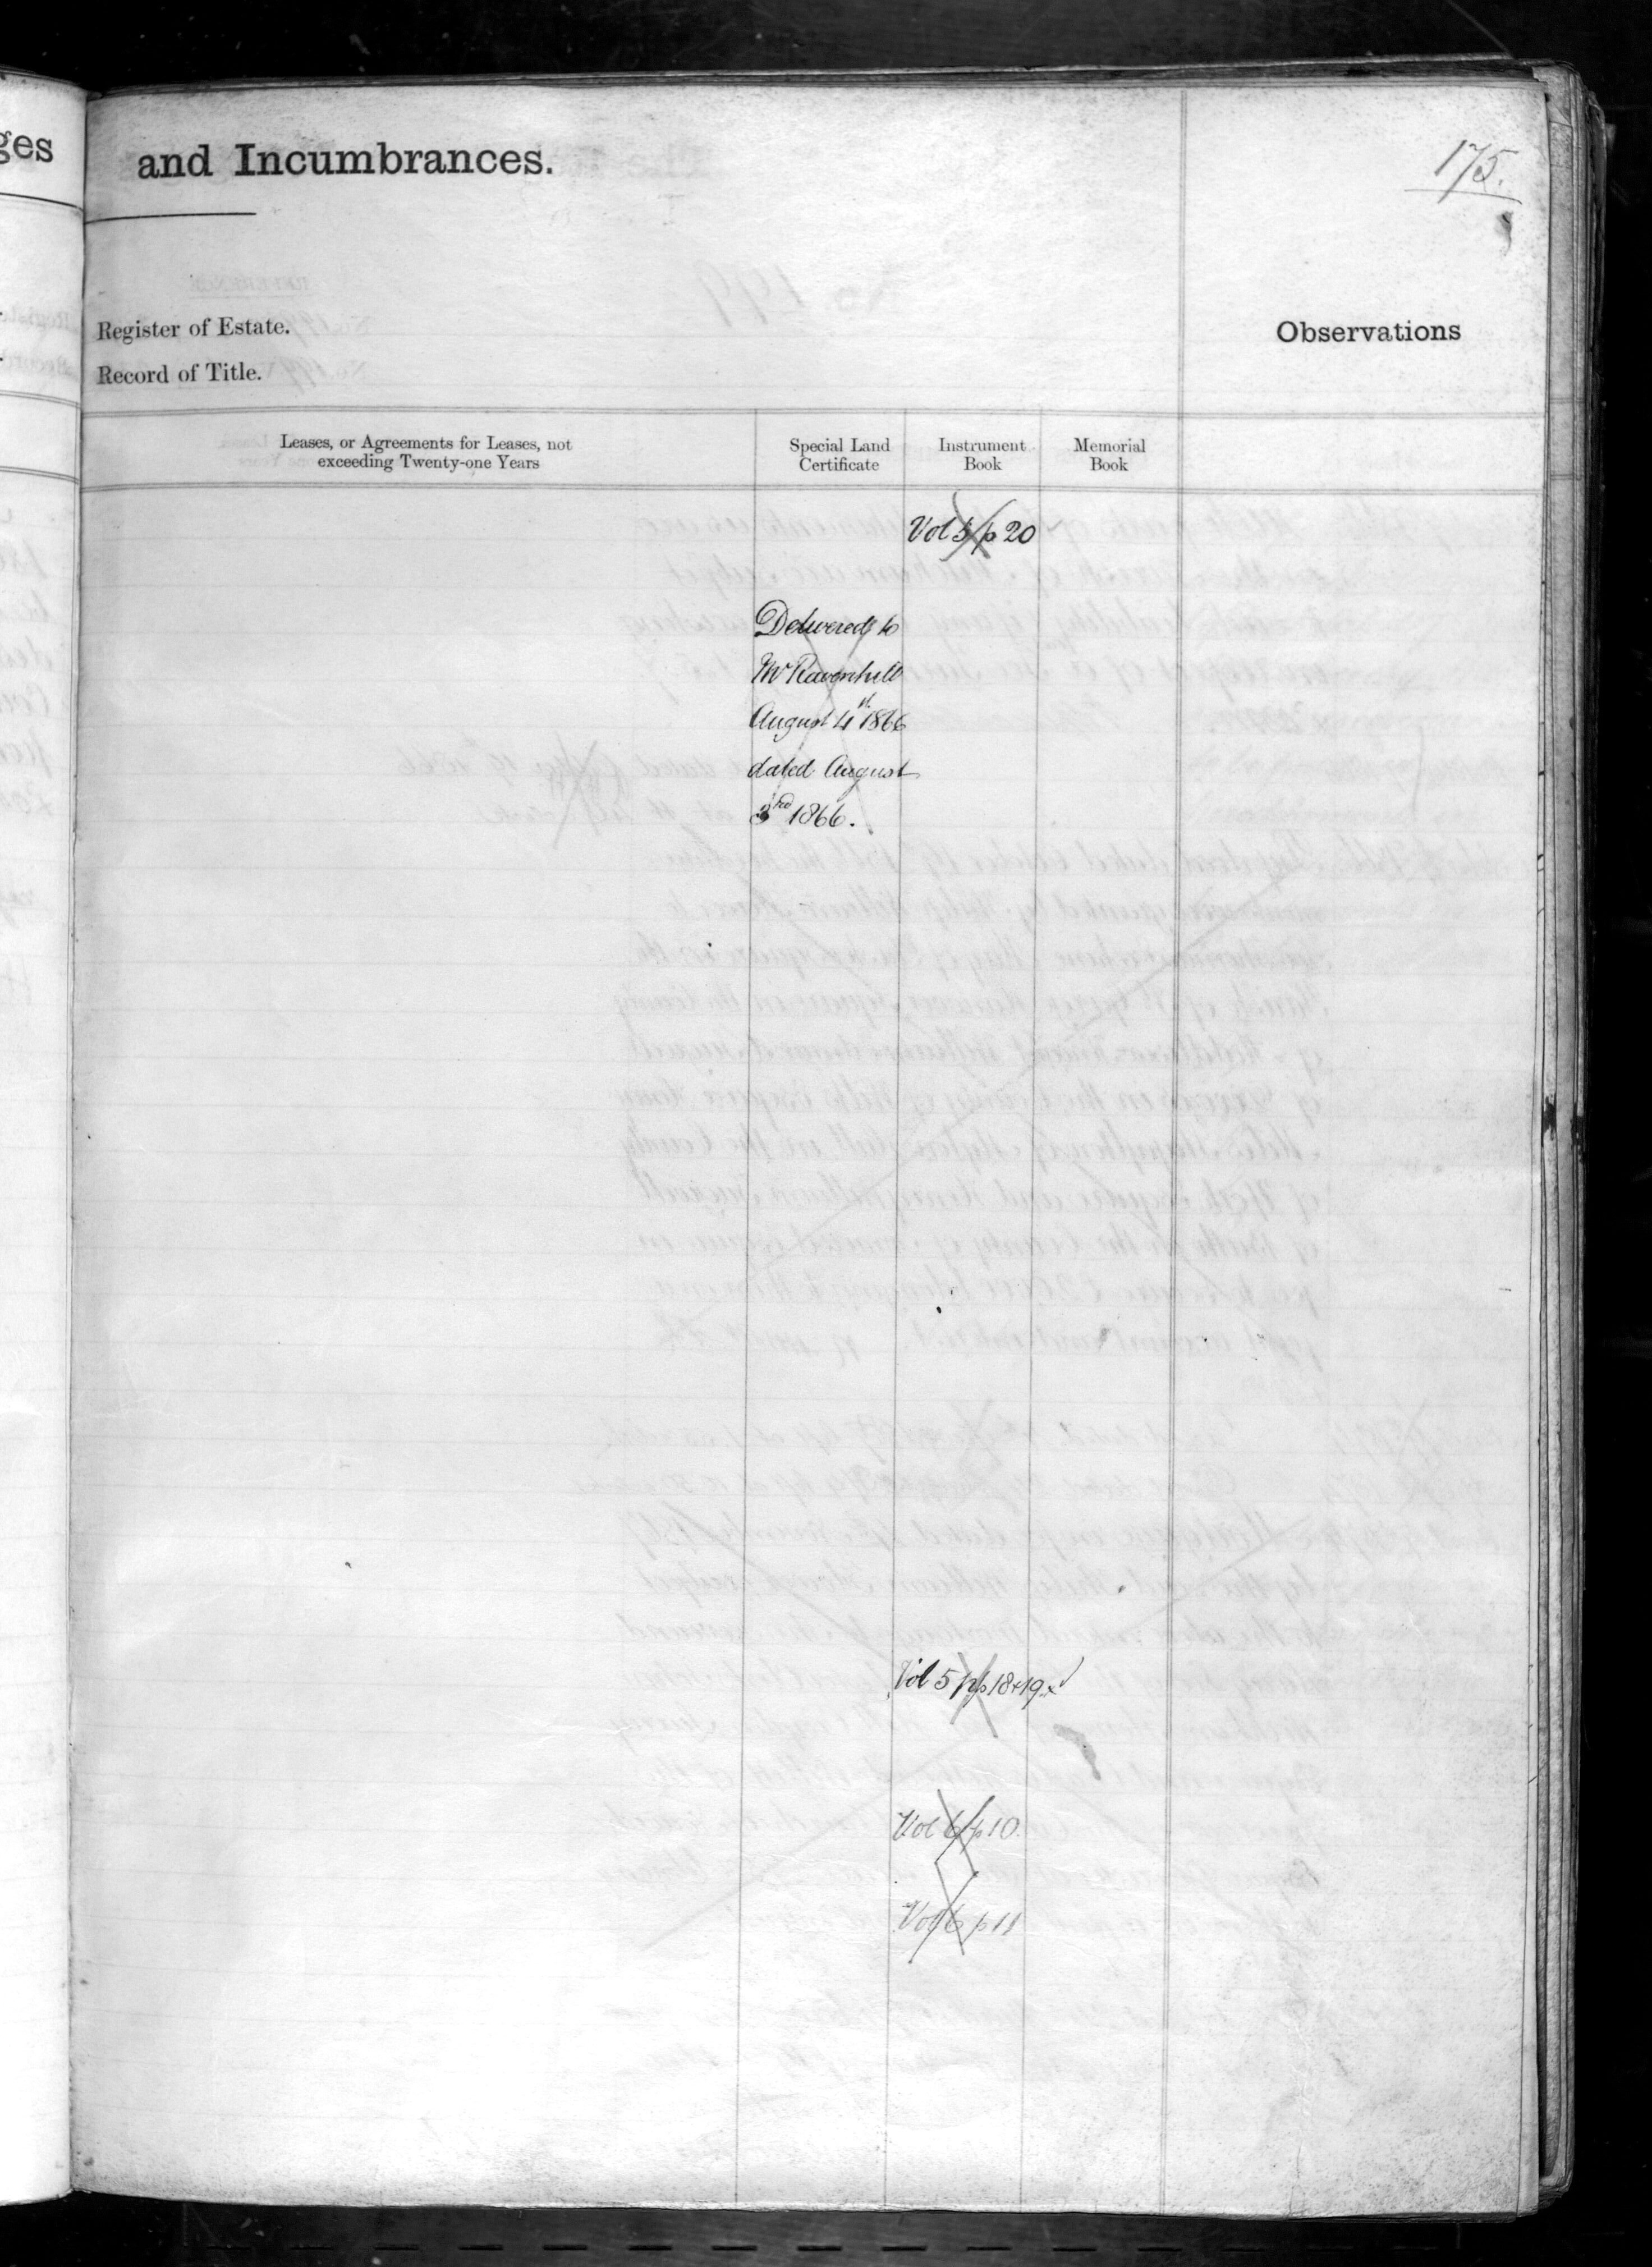 ges
and Incumbrances.
175.
Register of Estate.
Record of Title.
Observations
Leases, or Agreements for Leases, not
exceeding Twenty-one Years
Special Land
Certificate
Instrument
Book
Memorial
Book
Vol 5 p 20
Delivered to
Mr Ravenhill
August 4th 1866
dated August
3rd 1866.
Vol 5 pp 18+19
Vol 6 p 10
Vol 6 p 11